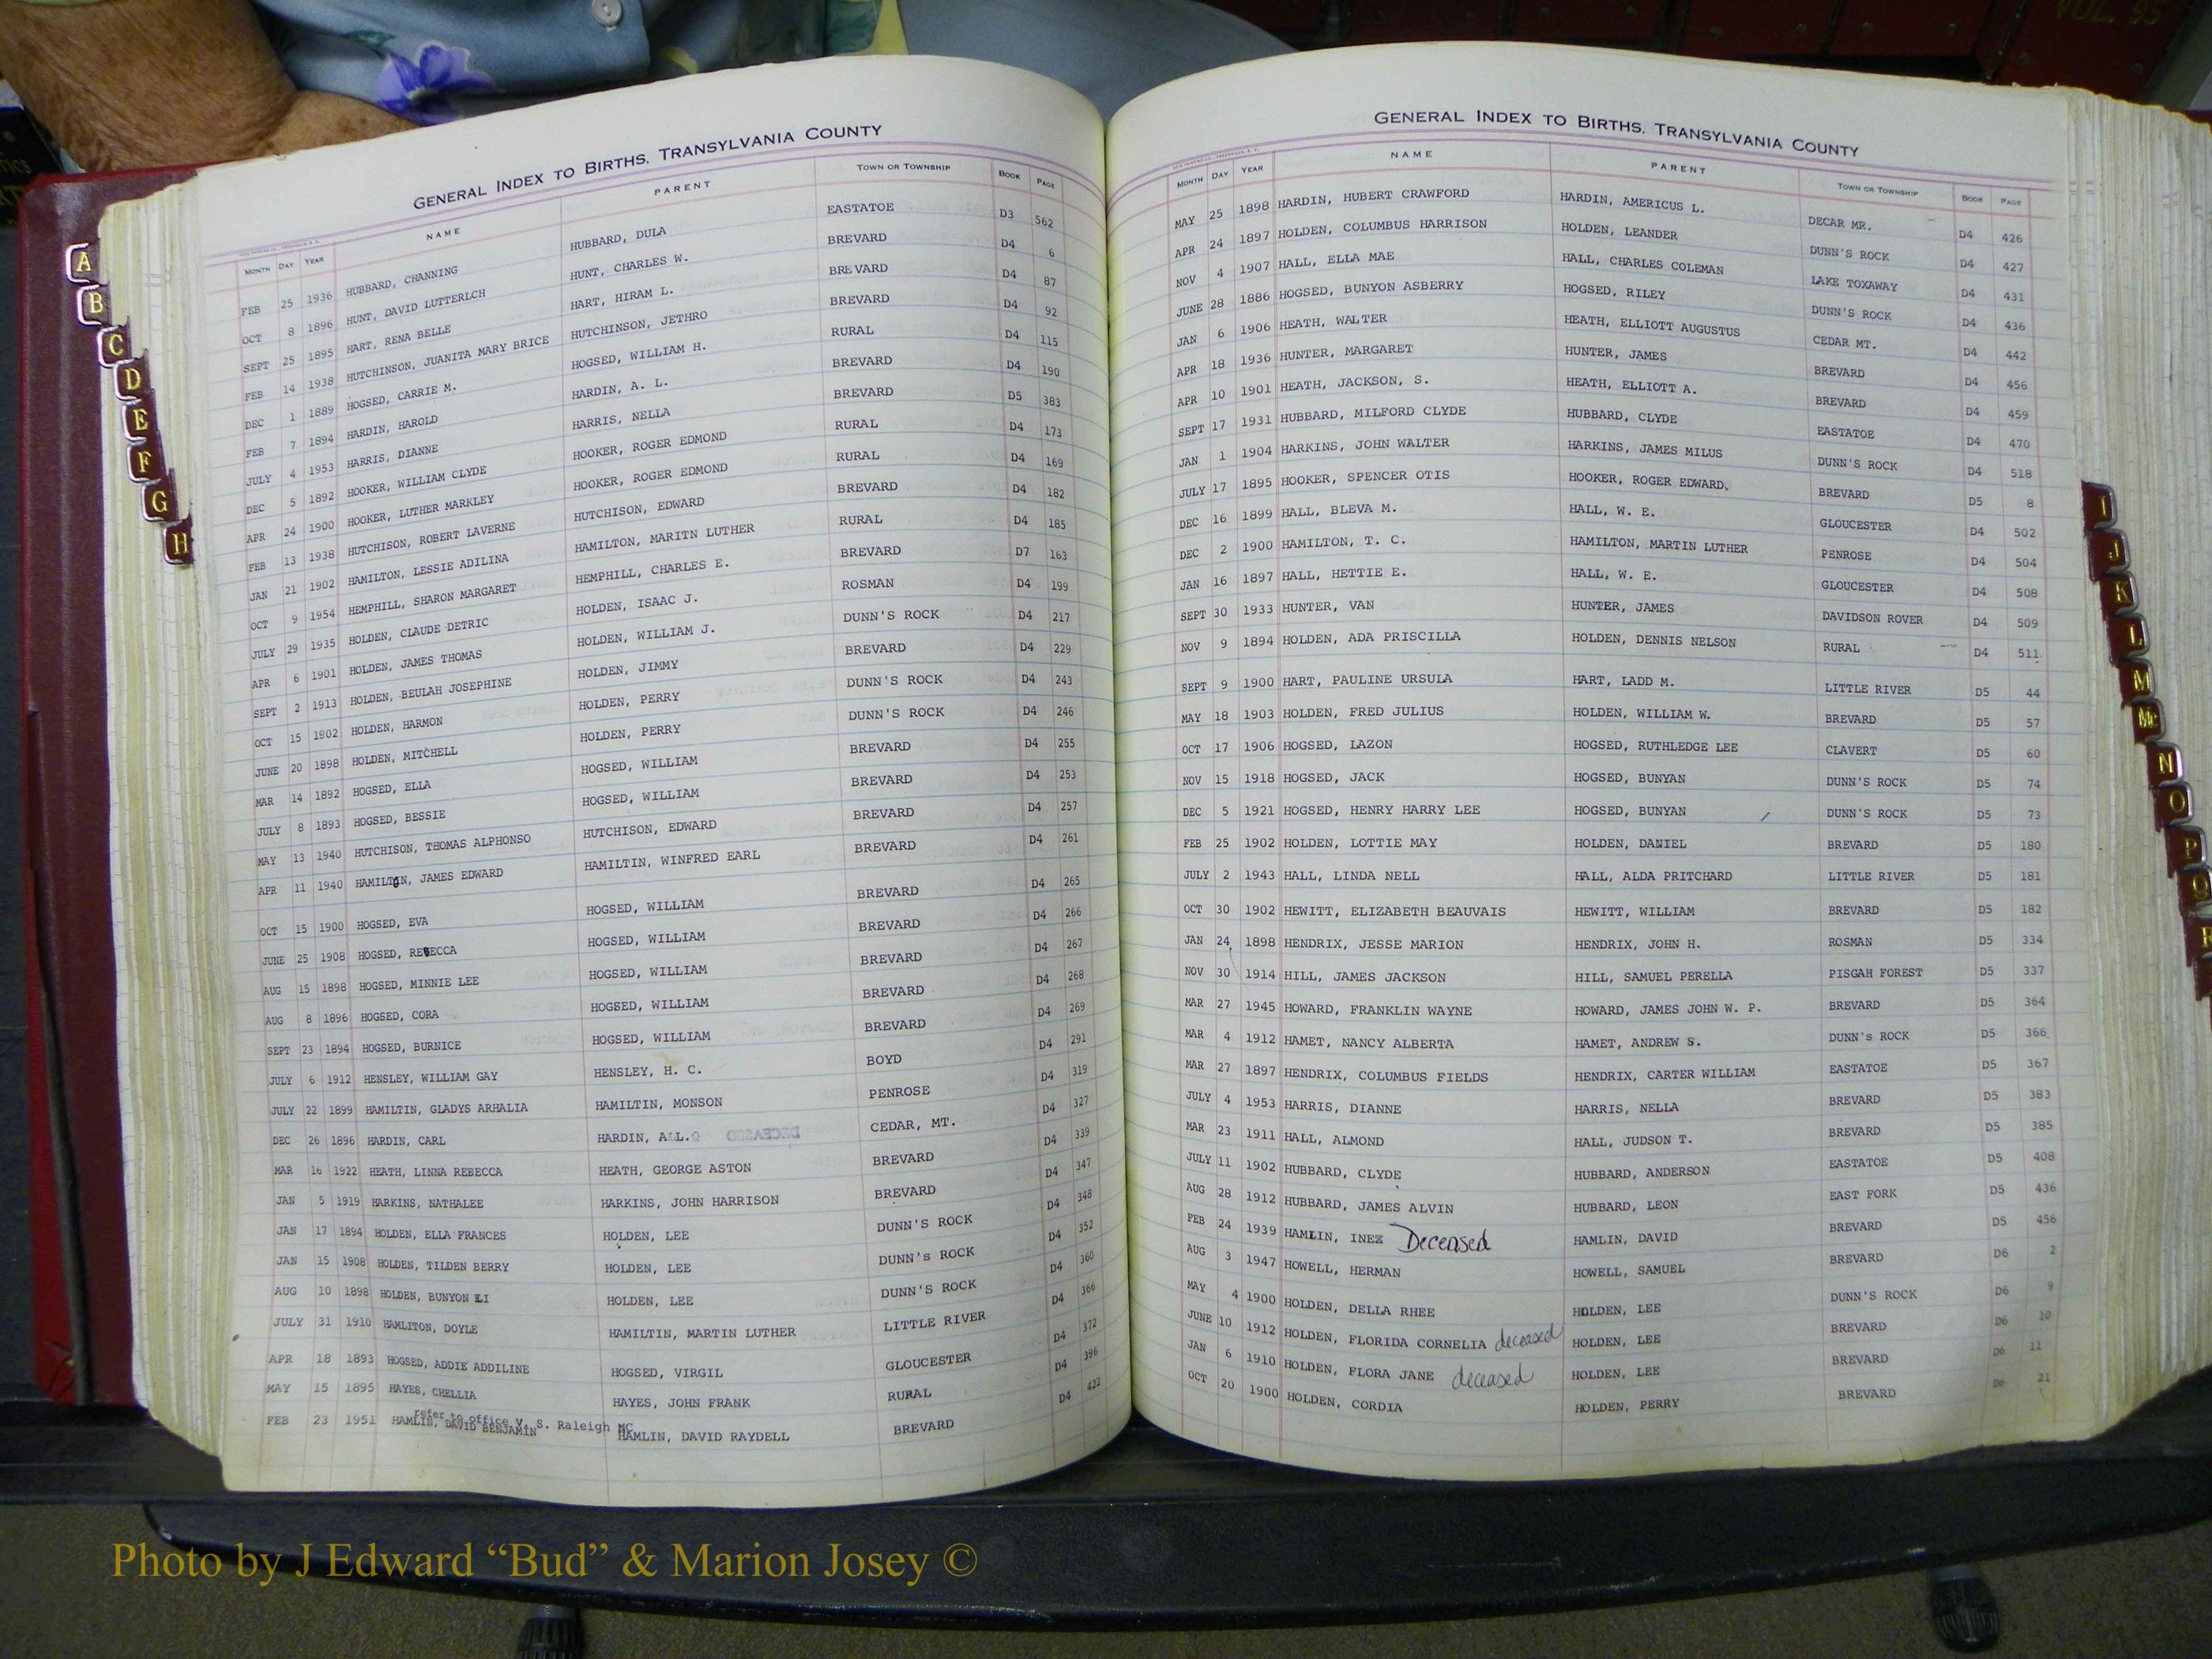 GENERAL INDEX TO BIRTHS, TRANSYLVANIA COUNTY
MONTH DAY YEAR NAME PARENT TOWN OR TOWNSHIP BOOK PAGE
FEB 25 1936 HUBBARD, CHANNING HUBBARD, DULA EASTATOE D3 562
OCT 8 1896 HUNT, DAVID LUTTERLCH HUNT, CHARLES W. BREVARD D4 6
SEPT 25 1895 HART, RENA BELLE HART, HIRAM L. BREVARD D4 87
FEB 14 1938 HUTCHINSON, JUANITA MARY BRICE HUTCHINSON, JETHRO BREVARD D4 92
DEC 1 1889 HOGSED, CARRIE M. HOGSED, WILLIAM H. RURAL D4 115
FEB 7 1894 HARDIN, HAROLD HARDIN, A. L. BREVARD D4 190
JULY 4 1953 HARRIS, DIANNE HARRIS, NELLA BREVARD D5 383
DEC 5 1892 HOOKER, WILLIAM CLYDE HOOKER, ROGER EDMOND RURAL D4 173
APR 24 1900 HOOKER, LUTHER MARKLEY HOOKER, ROGER EDMOND RURAL D4 169
FEB 13 1938 HUTCHISON, ROBERT LAVERNE HUTCHISON, EDWARD BREVARD D4 182
JAN 21 1902 HAMILTON, LESSIE ADILINA HAMILTON, MARITN LUTHER RURAL D4 185
OCT 9 1954 HEMPHILL, SHARON MARGARET HEMPHILL, CHARLES E. BREVARD D7 163
JULY 29 1935 HOLDEN, CLAUDE DETRIC HOLDEN, ISAAC J. ROSMAN D4 199
APR 6 1901 HOLDEN, JAMES THOMAS HOLDEN, WILLIAM J. DUNN'S ROCK D4 217
SEPT 2 1913 HOLDEN, BEULAH JOSEPHINE HOLDEN, JIMMY BREVARD D4 229
OCT 15 1902 HOLDEN, HARMON HOLDEN, PERRY DUNN'S ROCK D4 243
JUNE 20 1898 HOLDEN, MITCHELL HOLDEN, PERRY DUNN'S ROCK D4 246
MAR 14 1892 HOGSED, ELLA HOGSED, WILLIAM BREVARD D4 255
JULY 8 1893 HOGSED, BESSIE HOGSED, WILLIAM BREVARD D4 253
MAY 13 1940 HUTCHISON, THOMAS ALPHONSO HUTCHISON, EDWARD BREVARD D4 257
APR 11 1940 HAMILTON, JAMES EDWARD HAMILTIN, WINFRED EARL BREVARD D4 261
OCT 15 1900 HOGSED, EVA HOGSED, WILLIAM BREVARD D4 265
JUNE 25 1908 HOGSED, REBECCA HOGSED, WILLIAM BREVARD D4 266
AUG 15 1898 HOGSED, MINNIE LEE HOGSED, WILLIAM BREVARD D4 267
AUG 8 1896 HOGSED, CORA HOGSED, WILLIAM BREVARD D4 268
SEPT 23 1894 HOGSED, BURNICE HOGSED, WILLIAM BREVARD D4 269
JULY 6 1912 HENSLEY, WILLIAM GAY HENSLEY, H. C. BOYD D4 291
JULY 22 1899 HAMILTIN, GLADYS ARHALIA HAMILTIN, MONSON PENROSE D4 319
DEC 26 1896 HARDIN, CARL HARDIN, A.L. CEDAR, MT. D4 327
MAR 16 1922 HEATH, LINNA REBECCA HEATH, GEORGE ASTON BREVARD D4 339
JAN 5 1919 HARKINS, NATHALEE HARKINS, JOHN HARRISON BREVARD D4 347
JAN 17 1894 HOLDEN, ELLA FRANCES HOLDEN, LEE DUNN'S ROCK D4 348
JAN 15 1908 HOLDEN, TILDEN BERRY HOLDEN, LEE DUNN'S ROCK D4 352
AUG 10 1898 HOLDEN, BUNYON ELI HOLDEN, LEE DUNN'S ROCK D4 360
JULY 31 1910 HAMLITON, DOYLE HAMILTIN, MARTIN LUTHER LITTLE RIVER D4 366
APR 18 1893 HOGSED, ADDIE ADDILINE HOGSED, VIRGIL GLOUCESTER D4 372
MAY 15 1895 HAYES, CHELLIA HAYES, JOHN FRANK RURAL D4 396
refer to office V. S. Raleigh NC
FEB 23 1951 HAMLIN, DAVID BENJAMIN HAMLIN, DAVID RAYDELL BREVARD D4 422
GENERAL INDEX TO BIRTHS, TRANSYLVANIA COUNTY
MONTH DAY YEAR NAME PARENT TOWN OR TOWNSHIP BOOK PAGE
MAY 25 1898 HARDIN, HUBERT CRAWFORD HARDIN, AMERICUS L. DECAR MR. D4 426
APR 24 1897 HOLDEN, COLUMBUS HARRISON HOLDEN, LEANDER DUNN'S ROCK D4 427
NOV 4 1907 HALL, ELLA MAE HALL, CHARLES COLEMAN LAKE TOXAWAY D4 431
JUNE 28 1886 HOGSED, BUNYON ASBERRY HOGSED, RILEY DUNN'S ROCK D4 436
JAN 6 1906 HEATH, WALTER HEATH, ELLIOTT AUGUSTUS CEDAR MT. D4 442
APR 18 1936 HUNTER, MARGARET HUNTER, JAMES BREVARD D4 456
APR 10 1901 HEATH, JACKSON, S. HEATH, ELLIOTT A. BREVARD D4 459
SEPT 17 1931 HUBBARD, MILFORD CLYDE HUBBARD, CLYDE EASTATOE D4 470
JAN 1 1904 HARKINS, JOHN WALTER HARKINS, JAMES MILUS DUNN'S ROCK D4 518
JULY 17 1895 HOOKER, SPENCER OTIS HOOKER, ROGER EDWARD, BREVARD D5 8
DEC 16 1899 HALL, BLEVA M. HALL, W. E. GLOUCESTER D4 502
DEC 2 1900 HAMILTON, T. C. HAMILTON, MARTIN LUTHER PENROSE D4 504
JAN 16 1897 HALL, HETTIE E. HALL, W. E. GLOUCESTER D4 508
SEPT 30 1933 HUNTER, VAN HUNTER, JAMES DAVIDSON ROVER D4 509
NOV 9 1894 HOLDEN, ADA PRISCILLA HOLDEN, DENNIS NELSON RURAL D4 511
SEPT 9 1900 HART, PAULINE URSULA HART, LADD M. LITTLE RIVER D5 44
MAY 18 1903 HOLDEN, FRED JULIUS HOLDEN, WILLIAM W. BREVARD D5 57
OCT 17 1906 HOGSED, LAZON HOGSED, RUTHLEDGE LEE CLAVERT D5 60
NOV 15 1918 HOGSED, JACK HOGSED, BUNYAN DUNN'S ROCK D5 74
DEC 5 1921 HOGSED, HENRY HARRY LEE HOGSED, BUNYAN DUNN'S ROCK D5 73
FEB 25 1902 HOLDEN, LOTTIE MAY HOLDEN, DANIEL BREVARD D5 180
JULY 2 1943 HALL, LINDA NELL HALL, ALDA PRITCHARD LITTLE RIVER D5 181
OCT 30 1902 HEWITT, ELIZABETH BEAUVAIS HEWITT, WILLIAM BREVARD D5 182
JAN 24 1898 HENDRIX, JESSE MARION HENDRIX, JOHN H. ROSMAN D5 334
NOV 30 1914 HILL, JAMES JACKSON HILL, SAMUEL PERELLA PISGAH FOREST D5 337
MAR 27 1945 HOWARD, FRANKLIN WAYNE HOWARD, JAMES JOHN W. P. BREVARD D5 364
MAR 4 1912 HAMET, NANCY ALBERTA HAMET, ANDREW S. DUNN's ROCK D5 366
MAR 27 1897 HENDRIX, COLUMBUS FIELDS HENDRIX, CARTER WILLIAM EASTATOE D5 367
JULY 4 1953 HARRIS, DIANNE HARRIS, NELLA BREVARD D5 383
MAR 23 1911 HALL, ALMOND HALL, JUDSON T. BREVARD D5 385
JULY 11 1902 HUBBARD, CLYDE HUBBARD, ANDERSON EASTATOE D5 408
AUG 28 1912 HUBBARD, JAMES ALVIN HUBBARD, LEON EAST FORK D5 436
FEB 24 1939 HAMLIN, INEZ Deceased HAMLIN, DAVID BREVARD D5 456
AUG 3 1947 HOWELL, HERMAN HOWELL, SAMUEL BREVARD D6 2
MAY 4 1900 HOLDEN, DELLA RHEE HOLDEN, LEE DUNN'S ROCK D6 9
JUNE 10 1912 HOLDEN, FLORIDA CORNELIA deceased HOLDEN, LEE BREVARD D6 10
JAN 6 1910 HOLDEN, FLORA JANE deceased HOLDEN, LEE BREVARD D6 11
OCT 20 1900 HOLDEN, CORDIA HOLDEN, PERRY BREVARD D6 21
A
B
C
D
E
F
G
H
I
J
K
L
M
Mc
N
O
P
Q
R
VOL. 95
Photo by J Edward “Bud” & Marion Josey ©